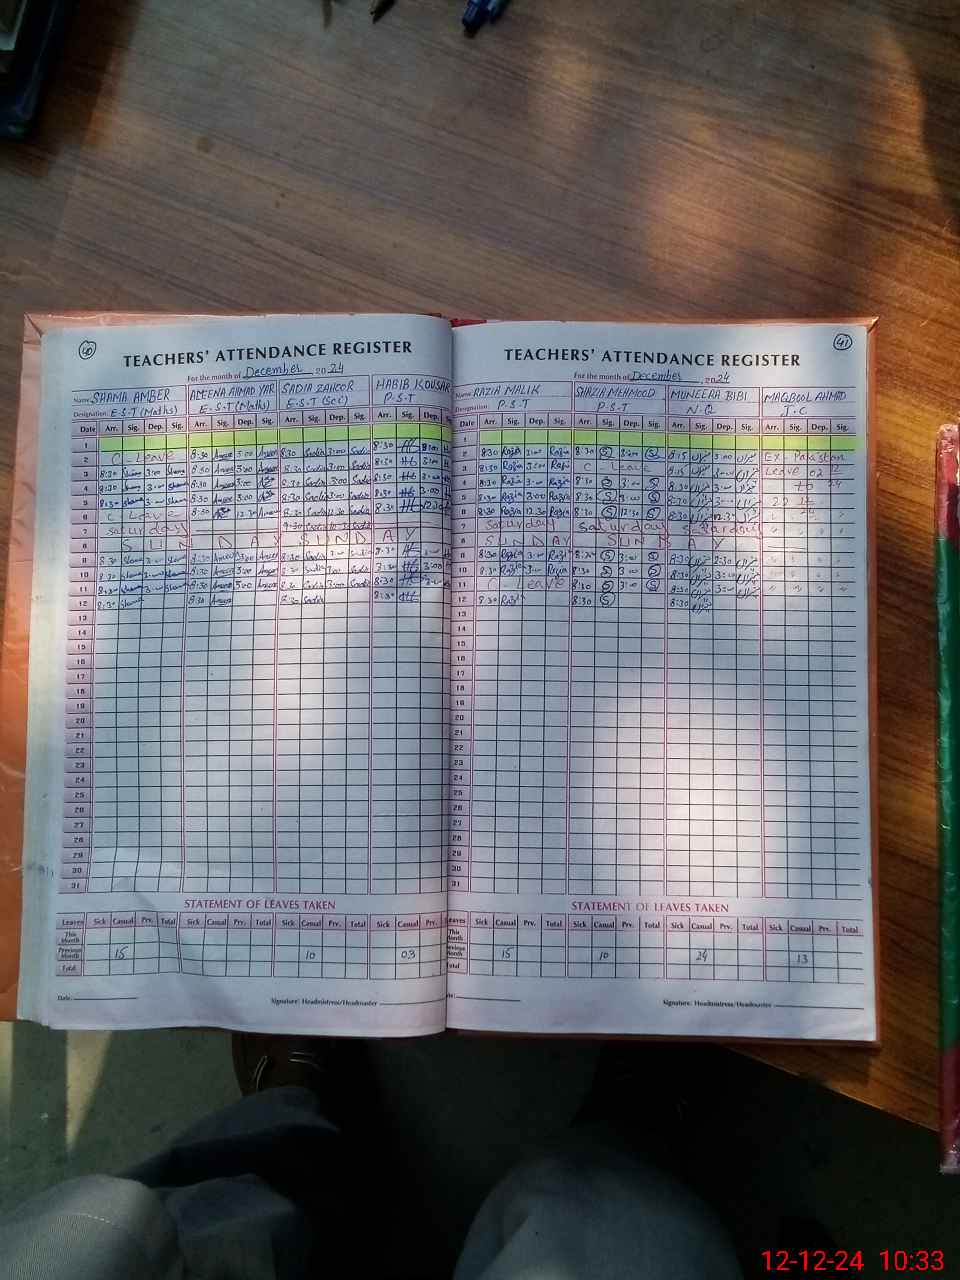 40
TEACHERS' ATTENDANCE REGISTER
For the month of December 2024
Name SHAMA AMBER AMEENA AHMAD YAR SADIA ZAHOOR HABIB KOUSAR
Designation: E.S.T (Maths) E.S.T (Maths) E.S.T (Sci) P.S.T
Date Arr. Sig. Dep. Sig. Arr. Sig. Dep. Sig. Arr. Sig. Dep. Sig. Arr. Sig. Dep.
1
2 C - Leave 8:30 3:00 8:30 Sadia 3:00 Sadia 8:30 3:00
3 8:30 Shama 3:00 Shama 8:30 3:00 8:30 Sadia 3:00 Sadia 8:30 3:00
4 8:30 Shama 3:00 Shama 8:30 3:00 8:30 Sadia 3:00 Sadia 8:30 3:00
5 8:30 Shama 3:00 Shama 8:30 3:00 8:30 Sadia 3:00 Sadia 8:30 3:00
6 C Leave 8:30 12:30 8:30 Sadia 12:30 Sadia 8:30
7 Saturday
8 SUNDAY SUNDAY
9 8:30 Shama 3:00 Shama 8:30 3:00 8:30 Sadia 3:00 Sadia 8:30
10 8:30 Shama 3:00 Shama 8:30 3:00 8:30 Sadia 3:00 Sadia 8:30 3:00
11 8:30 Shama 3:00 Shama 8:30 3:00 8:30 Sadia 3:00 Sadia 8:30
12 8:30 Shama 8:30 8:30 Sadia 8:30
13
14
15
16
17
18
19
20
21
22
23
24
25
26
27
28
29
30
31
STATEMENT OF LEAVES TAKEN
Leaves Sick Casual Prv. Total Sick Casual Prv. Total Sick Casual Prv. Total Sick Casual Prv.
This Month
Previous Month 15 10 03
Total
Date: Signature: Headmistress/Headmaster
41
TEACHERS' ATTENDANCE REGISTER
For the month of December 2024
Name RAZIA MALIK SHAZIA MEHMOOD MUNEERA BIBI MAQBOOL AHMAD
Designation: P.S.T P.S.T N.Q J.C
Date Arr. Sig. Dep. Sig. Arr. Sig. Dep. Sig. Arr. Sig. Dep. Sig. Arr. Sig. Dep. Sig.
1
2 8:30 Razia 3:00 Razia 8:30 S 3:00 S 8:15 3:00 Ex. Pakistan
3 8:30 Razia 3:00 Razia C - Leave 8:15 3:00 Leave 02
4 8:30 Razia 3:00 Razia 8:30 S 3:00 S 8:30 3:00 to 24
5 8:30 Razia 3:00 Razia 8:30 S 3:00 S 8:30 3:00
6 8:30 Razia 12:30 Razia 8:30 S 12:30 S 8:30 12:30
7 Saturday Saturday Saturday
8 SUNDAY SUNDAY
9 8:30 Razia 3:00 Razia 8:30 S 3:00 S 8:30 2:30
10 8:30 Razia 3:00 Razia 8:30 S 3:00 S 8:30 3:00
11 C Leave 8:30 S 3:00 S 8:30 3:00
12 8:30 Razia 8:30 S 8:30
13
14
15
16
17
18
19
20
21
22
23
24
25
26
27
28
29
30
31
STATEMENT OF LEAVES TAKEN
Leaves Sick Casual Prv. Total Sick Casual Prv. Total Sick Casual Prv. Total Sick Casual Prv. Total
This Month
Previous Month 15 10 24 13
Total
Signature: Headmistress/Headmaster
12-12-24 10:33